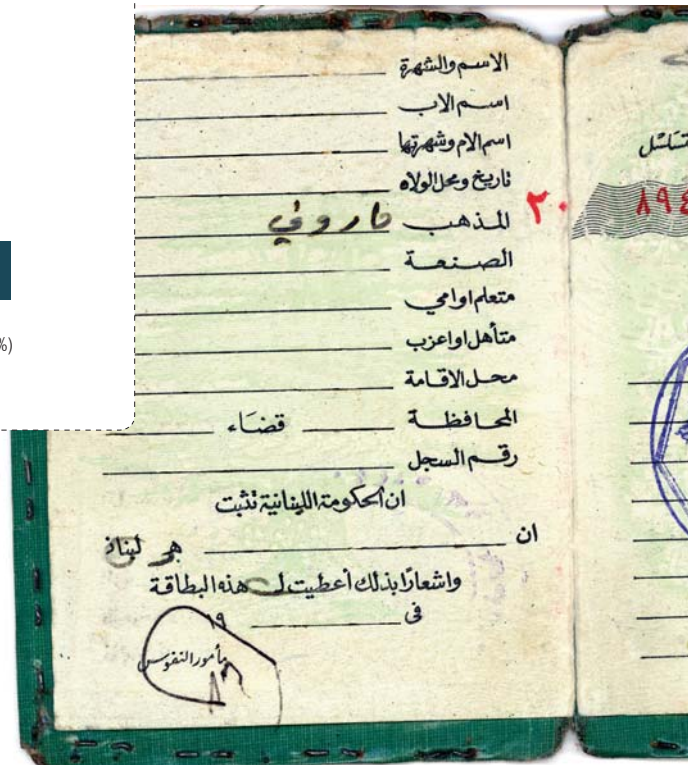 %)
الاسم والشهرة
اسم الاب
اسم الام وشهرتها
تاريخ ومحل الولاده
المذهب ماروني
الصنعة
متعلم او امي
متأهل او اعزب
محل الاقامة
المحافظة قضاء
رقم السجل
ان الحكومة اللبنانية تثبت
ان هو لبناني
واشعارًا بذلك أعطيت له هذه البطاقة
في ١٩
مأمور النفوس
٢٠
٨٩٤